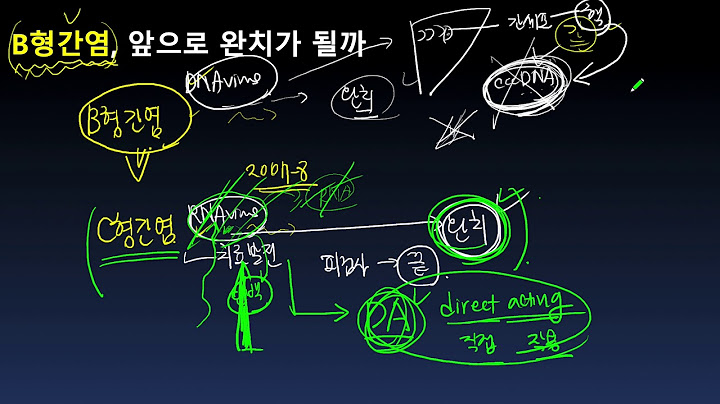 B형간염, 앞으로 완치가 될까
DNAvirus
간세포
핵
간
B형간염
완치
cccDNA
2007-8
RNA
C형간염
RNAvirus
완치
치료발전
피검사 → 끝
DA
direct acting
직접 작용